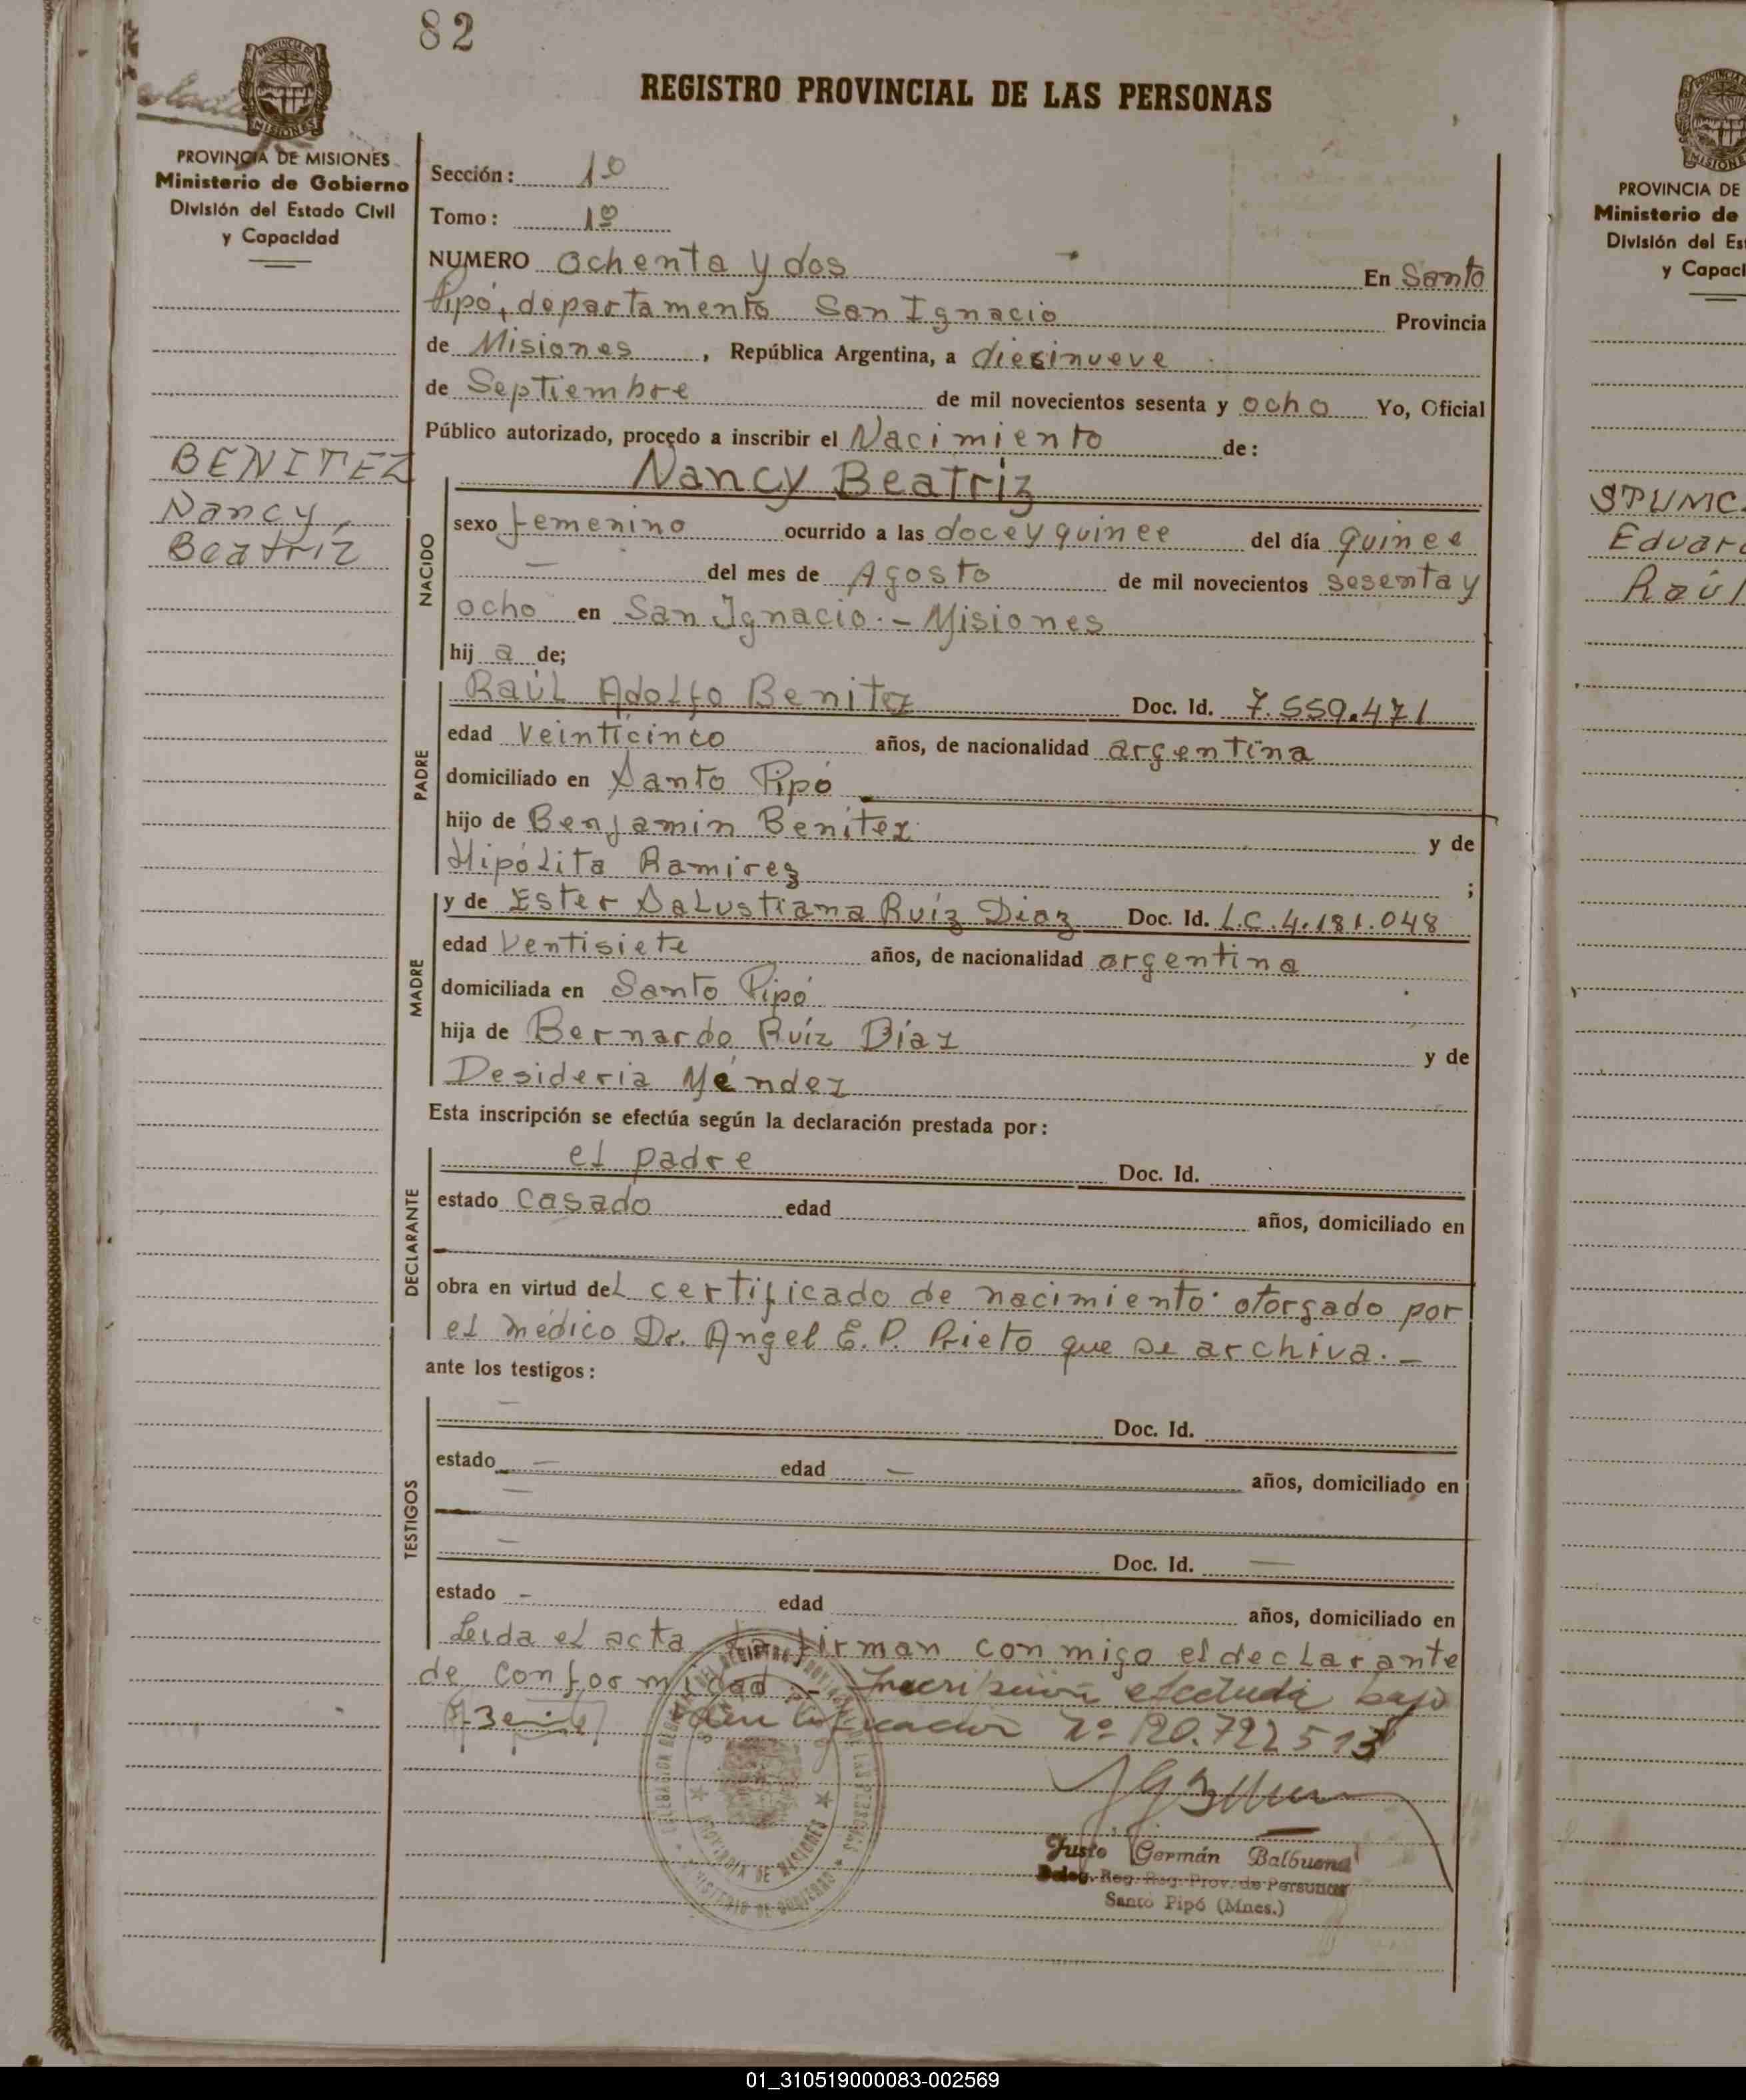 82
REGISTRO PROVINCIAL DE LAS PERSONAS
PROVINCIA DE MISIONES
Ministerio de Gobierno
División del Estado Civil
y Capacidad
BENITEZ
Nancy
Beatriz
Sección: 1º
Tomo: 1º
NUMERO ochenta y dos En Santo
Pipó, departamento San Ignacio Provincia
de Misiones, República Argentina, a diecinueve
de Septiembre de mil novecientos sesenta y ocho Yo, Oficial
Público autorizado, procedo a inscribir el Nacimiento de:
Nancy Beatriz
NACIDO
sexo femenino ocurrido a las doce y quince del día quince
— del mes de Agosto de mil novecientos sesenta y
ocho en San Ignacio.- Misiones
hij a de;
PADRE
Raúl Adolfo Benitez Doc. Id. 7.559.471
edad Veinticinco años, de nacionalidad argentina
domiciliado en Santo Pipó
hijo de Benjamin Benítez y de
Hipólita Ramirez ;
MADRE
y de Ester Salustiana Ruíz Diaz Doc. Id. L.C.4.181.048
edad Ventisiete años, de nacionalidad argentina
domiciliada en Santo Pipó
hija de Bernardo Ruíz Díaz y de
Desideria Méndez
Esta inscripción se efectúa según la declaración prestada por:
DECLARANTE
el padre Doc. Id.
estado casado edad años, domiciliado en
obra en virtud del certificado de nacimiento otorgado por
el médico Dr. Angel E. P. Prieto que se archiva.-
ante los testigos:
TESTIGOS
— Doc. Id.
estado — edad — años, domiciliado en
—
— Doc. Id. —
estado - edad años, domiciliado en
Leida el acta la firman conmigo el declarante
de conformidad.- Inscripción efectuada bajo
identificación Nº 20.722513
PROVINCIA DE MISIONES
MINISTERIO DE GOBIERNO
Justo Germán Balbuena
Deleg. Reg. Reg. Prov. de Personas
Santo Pipó (Mnes.)
PROVINCIA DE
Ministerio de
División del Es
y Capaci
Eduar
Raúl
01_310519000083-002569